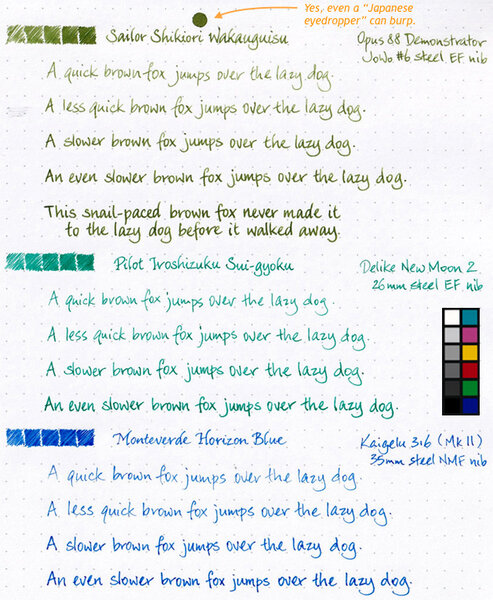 Yes, even a "Japanese
eyedropper" can burp.
Sailor Shikiori Wakauguisu
Opus 88 Demonstrator
JoWo #6 steel EF nib
A quick brown fox jumps over the lazy dog.
A less quick brown fox jumps over the lazy dog.
A slower brown fox jumps over the lazy dog.
An even slower brown fox jumps over the lazy dog.
This snail-paced brown fox never made it
to the lazy dog before it walked away.
Pilot Iroshizuku Sui-gyoku
Delike New Moon 2
26mm steel EF nib
A quick brown fox jumps over the lazy dog.
A less quick brown fox jumps over the lazy dog.
A slower brown fox jumps over the lazy dog.
An even slower brown fox jumps over the lazy dog.
Monteverde Horizon Blue
Kaigelu 316 (Mk II)
35mm steel NMF nib
A quick brown fox jumps over the lazy dog.
A less quick brown fox jumps over the lazy dog.
A slower brown fox jumps over the lazy dog.
An even slower brown fox jumps over the lazy dog.